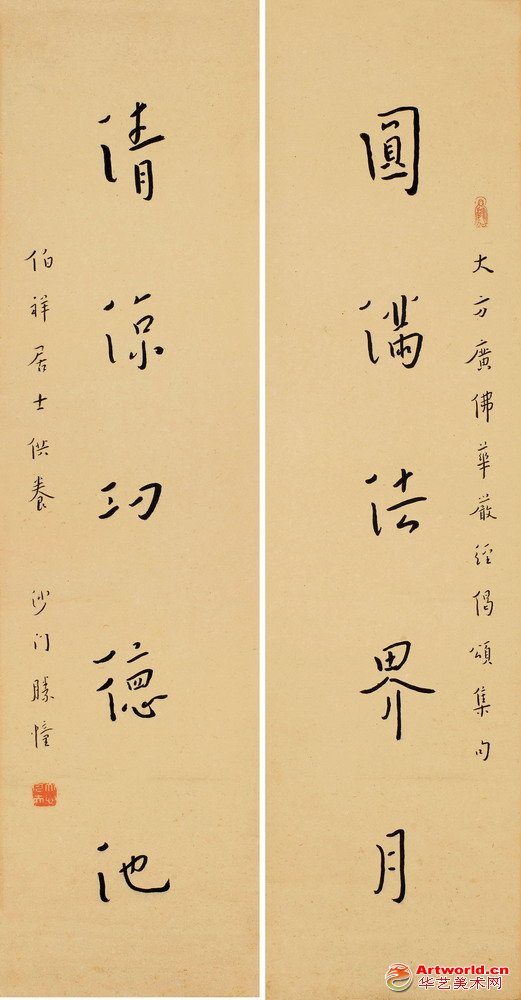 大方廣佛華嚴經偈頌集句
圓滿法界月
清涼功德池
伯祥居士供養 沙门勝幢
Artworld.cn
华艺美术网